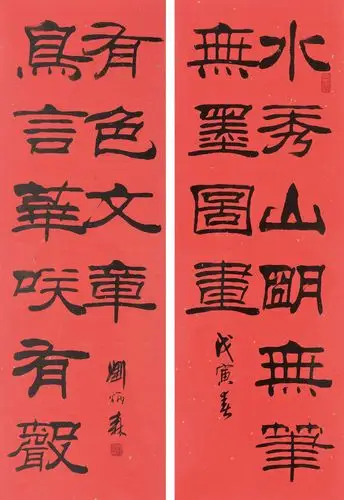 水秀山朙無筆
無墨圖畫
戊寅春
鳥言華咲有聲
有色文章
劉炳森